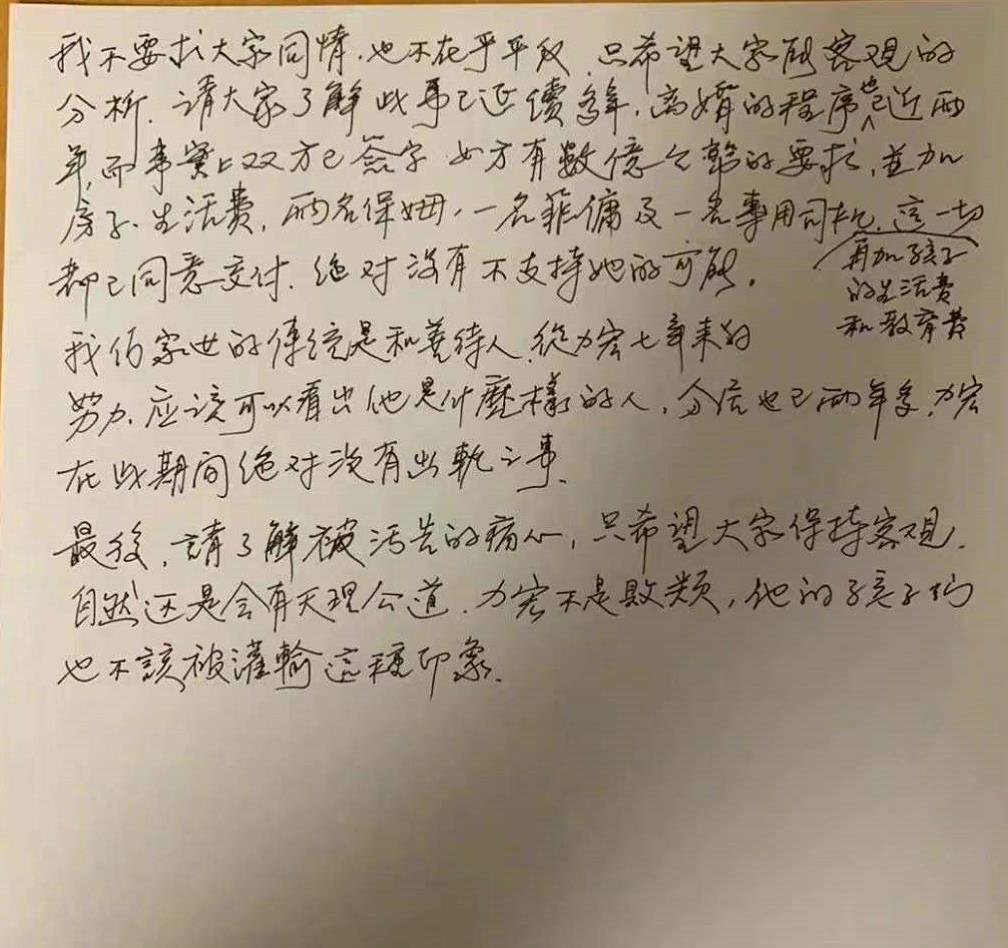 我不要求大家同情.也不在乎平反.只希望大家能客观的
分析.请大家了解此事已延續多年,离婚的程序也已近两
年,而事實上双方已簽字 女方有數億台幣的要求,並加
房子、生活費,两名保姆,一名菲傭及一名專用司机.這一切
再加孩子
的生活费
和教育费
都已同意交付.绝对没有不支持她的可能,
我们家世的传统是和善待人.從力宏七年来的
努力.应该可以看出他是什麼樣的人,分居也已两年多,力宏
在此期间绝对没有出軌之事.
最後,請了解被污告的痛心,只希望大家保持客观.
自然还是会有天理公道.力宏不是败类,他的孩子们
也不該被灌輸這種印象.